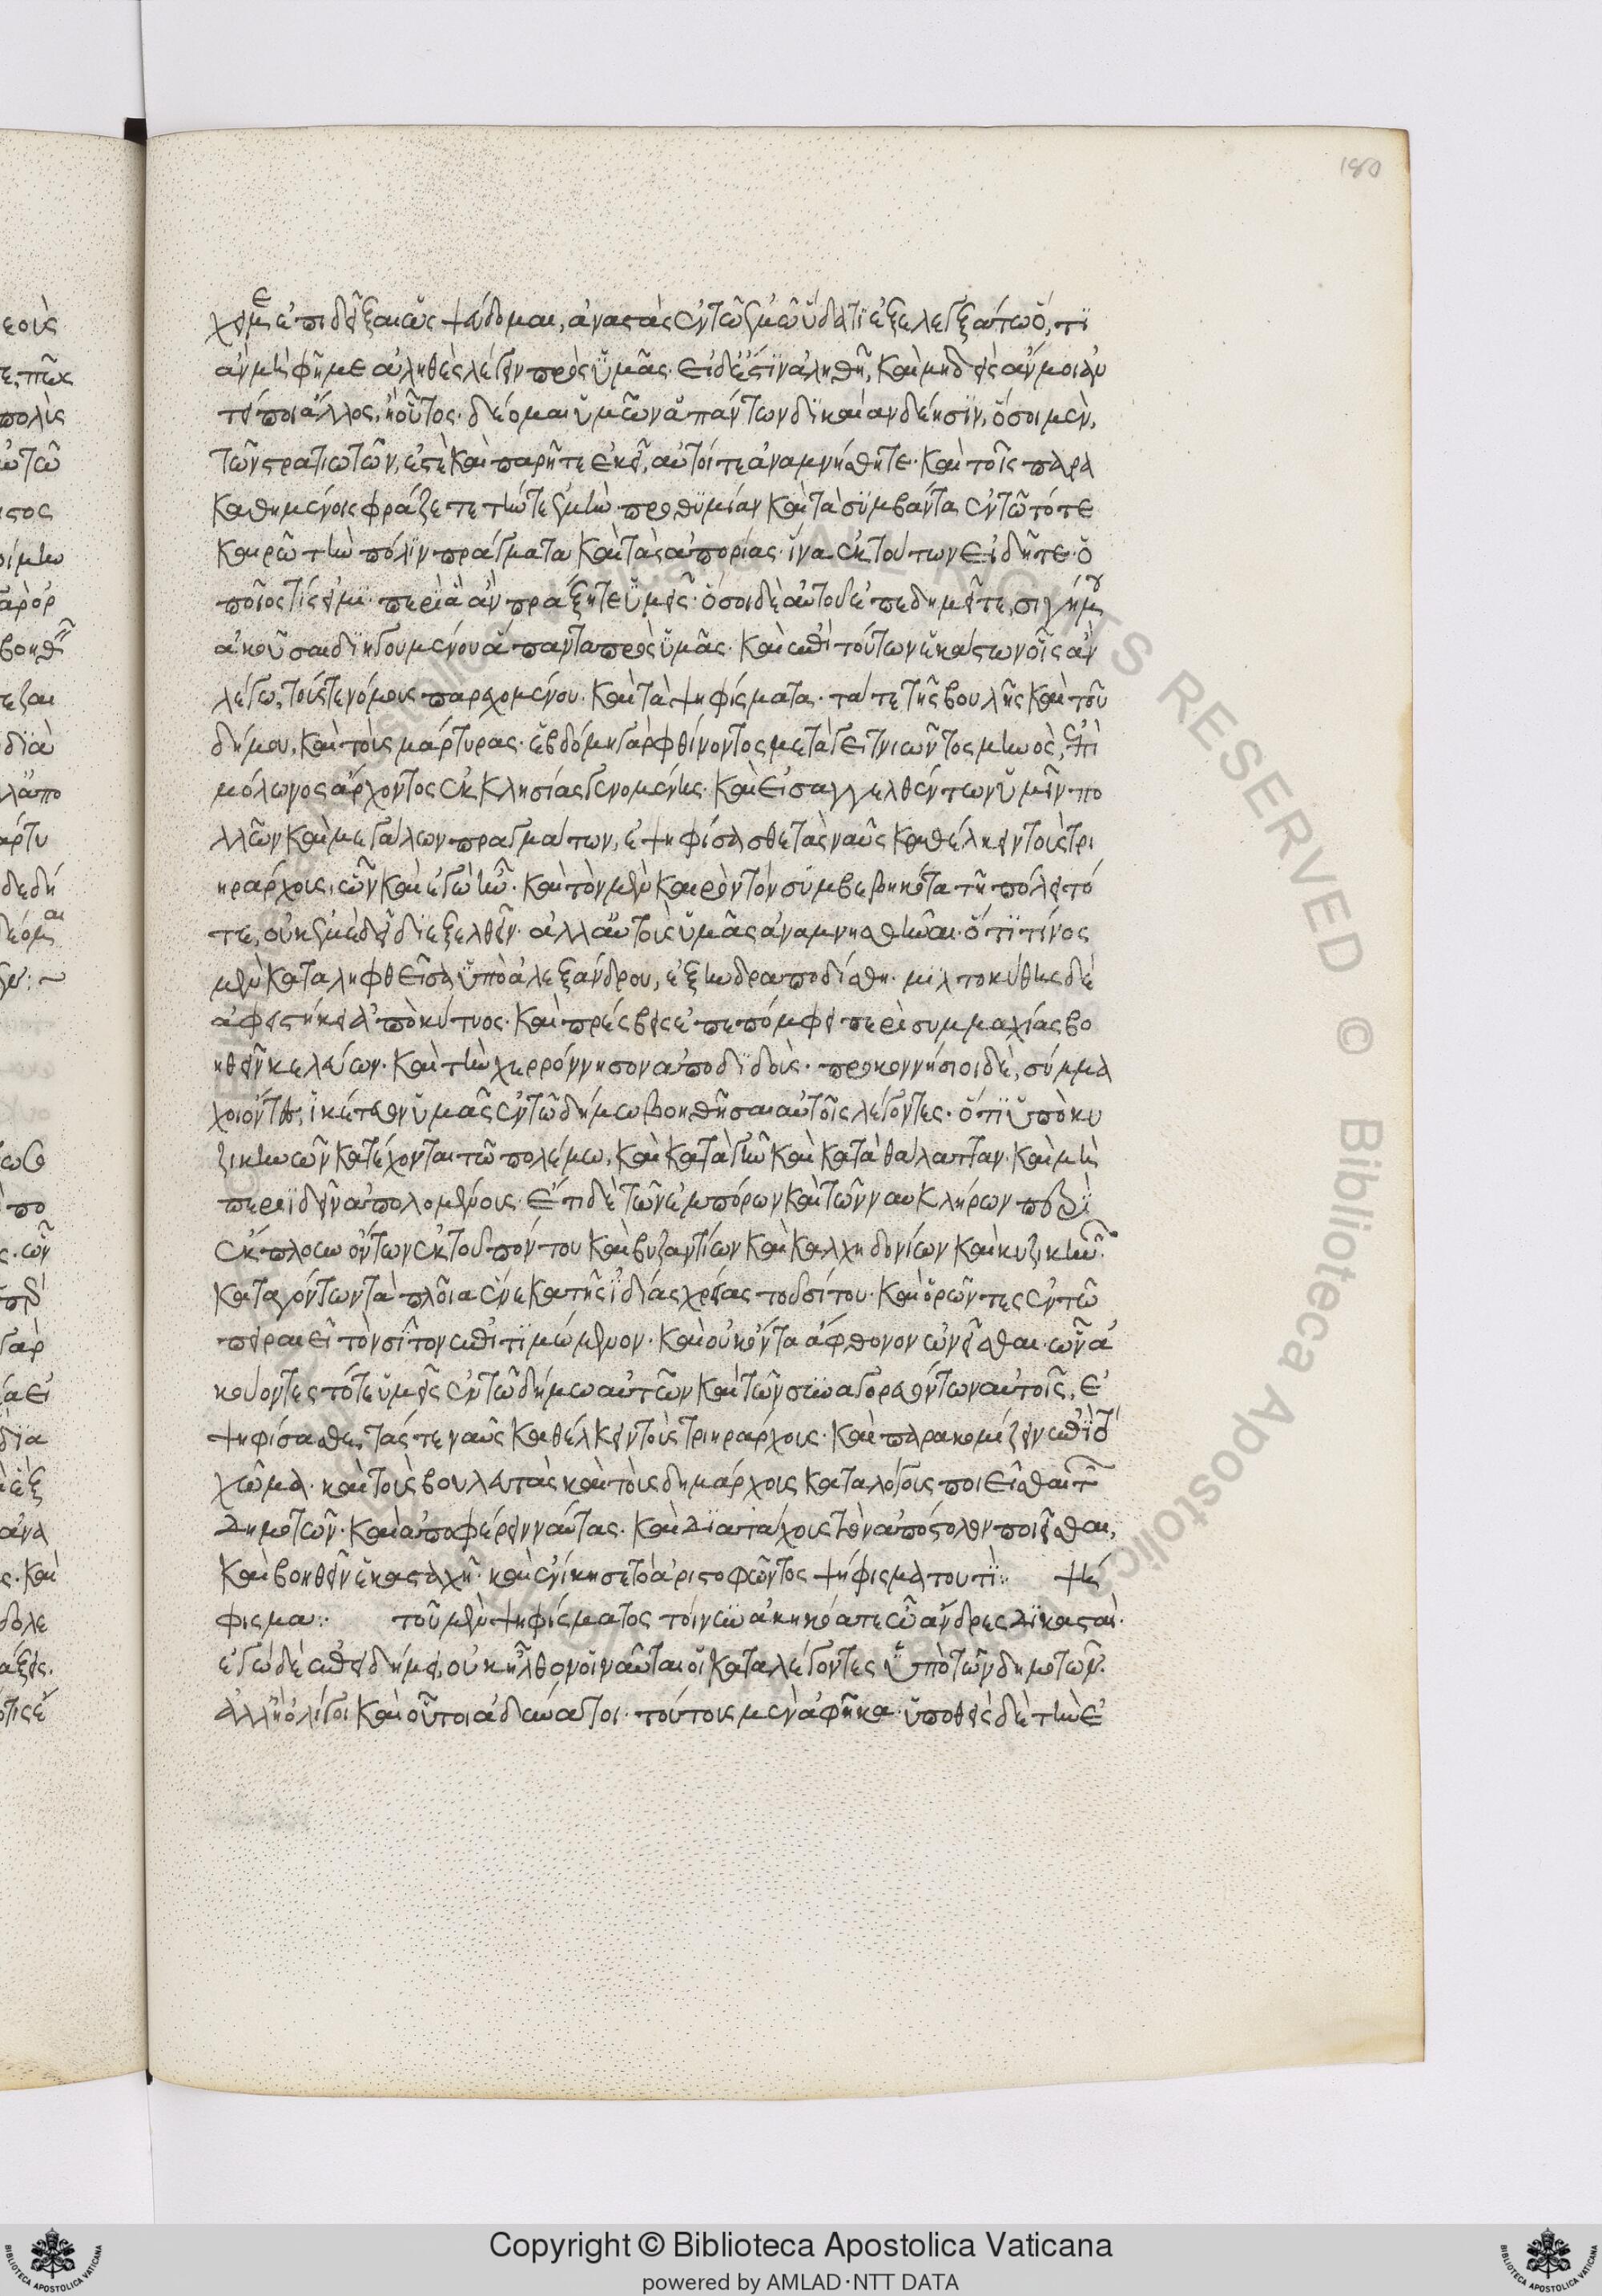 180
χει με ἐπιδεῖξαι ὡς ψεύδομαι, ἀναστὰς ἐν τῶ ἐμῶ ὕδατι ἐξελεγξάτω ὅ,τι
ἂν μὴ φῆ με ἀληθὲς λέγειν πρὸς ὑμᾶς. εἰ δέ ἐστιν ἀληθῆ, καὶ μηδεὶς ἄν μοι ἀν
τείποι ἄλλος, ἢ οὗτος. δέομαι ὑμῶν ἁπάντων δικαίαν δέησιν, ὅσοι μὲν,
τῶν στρατιωτῶν, ἐστὲ καὶ παρῆτε ἐκεῖ, αὐτοί τε ἀναμνήσθητε. καὶ τοῖς παρα
καθημένοις φράζετε τήν τε ἐμὴν προθυμίαν καὶ τὰ συμβάντα ἐν τῶ τότε
καιρῶ τὴν πόλιν πράγματα καὶ τὰς ἀπορίας. ἵνα ἐκ τούτων εἰδῆτε. ὁ
ποῖος τίς εἰμι. περὶ ἃ ἂν προάξητε ὑμεῖς. ὅσοι δὲ αὐτοῦ ἐπεδημεῖτε, σιγῆ μου
ἀκοῦσαι διηγουμένου ἅπαντα πρὸς ὑμᾶς. καὶ ἐπὶ τούτων ἑκάστων οἷς ἂν
λέγω, τούς τε νόμους παρεχομένου. καὶ τὰ ψηφίσματα. τά τε τῆς βουλῆς καὶ τοῦ
δήμου, καὶ τοὺς μάρτυρας. ἑβδόμη γὰρ φθίνοντος μεταγειτνιῶντος μηνὸς, ἐπὶ
μόλωνος ἄρχοντος ἐκκλησίας γενομένης. καὶ εἰσαγγελθέντων ὑμῖν πο
λλῶν καὶ μεγάλων πραγμάτων, ἐψηφίσασθε τὰς ναῦς καθέλκειν τοὺς τρι
ηράρχους, ὧν καὶ ἐγὼ ἦν. καὶ τὸν μὲν καιρὸν τὸν συμβεβηκότα τῆ πόλει τό
τε, οὐκ ἐμὲ δεῖ διεξελθεῖν. ἀλλ' αὐτοὺς ὑμᾶς ἀναμνησθῆναι. ὅτι τίνος
μὲν καταληφθεῖσα ὑπὸ ἀλεξάνδρου, ἐξηνδραποδίσθη. μιλτοκύθης δὲ
ἀφειστήκει ἀπὸ κότυος. καὶ πρέσβεις ἐπεπόμφει περὶ συμμαχίας βο
ηθεῖν κελεύων. καὶ τὴν χερρόννησον ἀποδιδούς. προκοννήσιοι δὲ, σύμμα
χοι ὄντες, ἱκέτευον ὑμᾶς ἐν τῶ δήμω βοηθῆσαι αὐτοῖς λέγοντες. ὅτι ὑπὸ κυ
ζικηνῶν κατέχονται τῶ πολέμω, καὶ κατὰ γῆν καὶ κατὰ θάλατταν. καὶ μὴ
περιιδεῖν ἀπολομένους. ἔτι δὲ τῶν ἐμπόρων καὶ τῶν ναυκλήρων περὶ
ἔκπλουν ὄντων ἐκ τοῦ πόντου καὶ βυζαντίων καὶ καλχηδονίων καὶ κυζικηνῶν
καταγόντων τὰ πλοῖα ἕνεκα τῆς ἰδίας χρείας τοῦ σίτου. καὶ ὁρῶντες ἐν τῶ
πειραιεῖ τὸν σῖτον ἐπιτιμώμενον. καὶ οὐκ ὄντα ἄφθονον ὠνεῖσθαι. ὧν ἀ
κούοντες τότε ὑμεῖς ἐν τῶ δήμω αὐτῶν καὶ τῶν συναγορευόντων αὐτοῖς, ἐ
ψηφίσασθε, τάς τε ναῦς καθέλκειν τοὺς τριηράρχους. καὶ παρακομίζειν ἐπὶ τὸ
χῶμα. καὶ τοὺς βουλευτὰς καὶ τοὺς δημάρχους καταλόγους ποιεῖσθαι τῶν
δημοτῶν. καὶ ἀποφέρειν ναύτας. καὶ διὰ τάχους τὸν ἀπόστολον ποιεῖσθαι,
καὶ βοηθεῖν ἑκασταχῆ. καὶ ἐνίκησε τὸ ἀριστοφῶντος ψήφισμα τουτί: ψή
φισμα: τοῦ μὲν ψηφίσματος τοίνυν ἀκηκόατε ὦ ἄνδρες δικασταί.
ἐγὼ δὲ ἐπειδή μοι, οὐκ ἦλθον οἱ ναῦται οἱ καταλέγοντες ὑπὸ τῶν δημοτῶν.
ἀλλ' ἢ ὀλίγοι καὶ οὗτοι ἀδύνατοι. τούτους μὲν ἀφῆκα. ὑποθεὶς δὲ τὴν ἐ
Copyright © Biblioteca Apostolica Vaticana
powered by AMLAD·NTT DATA